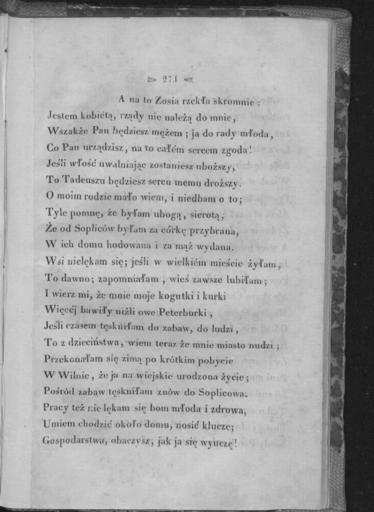 271
A na to Zosia rzekła skromnie:
Jestem kobiétą, rządy nie należą do mnie,
Wszakże Pan będziesz mężem; ja do rady młoda,
Co Pan urządzisz, na to całém sercem zgoda!
Jeśli włość uwalniając zostaniesz uboższy,
To Tadeuszu będziesz sercu memu droższy.
O moim rodzie mało wiem, i niedbam o to;
Tyle pomnę, że byłam ubogą, sierotą,
Że od Sopliców byłam za córkę przybrana,
W ich domu hodowana i za mąż wydana.
Wsi nielękam się; jeśli w wielkiém mieście żyłam,
To dawno; zapomniałam, wieś zawsze lubiłam;
I wierz mi, że mnie moje kogutki i kurki
Więcéj bawiły niźli owe Peterburki,
Jeśli czasem tęskniłam do zabaw, do ludzi,
To z dzieciństwa, wiem teraz że mnie miasto nudzi;
Przekonałam się zimą po krótkim pobycie
W Wilnie, że ja na wiejskie urodzona życie;
Pośród zabaw tęskniłam znów do Soplicowa.
Pracy też nie lękam się bom młoda i zdrowa,
Umiem chodzić około domu, nosić klucze;
Gospodarstwa, obaczysz, jak ja się wyuczę!